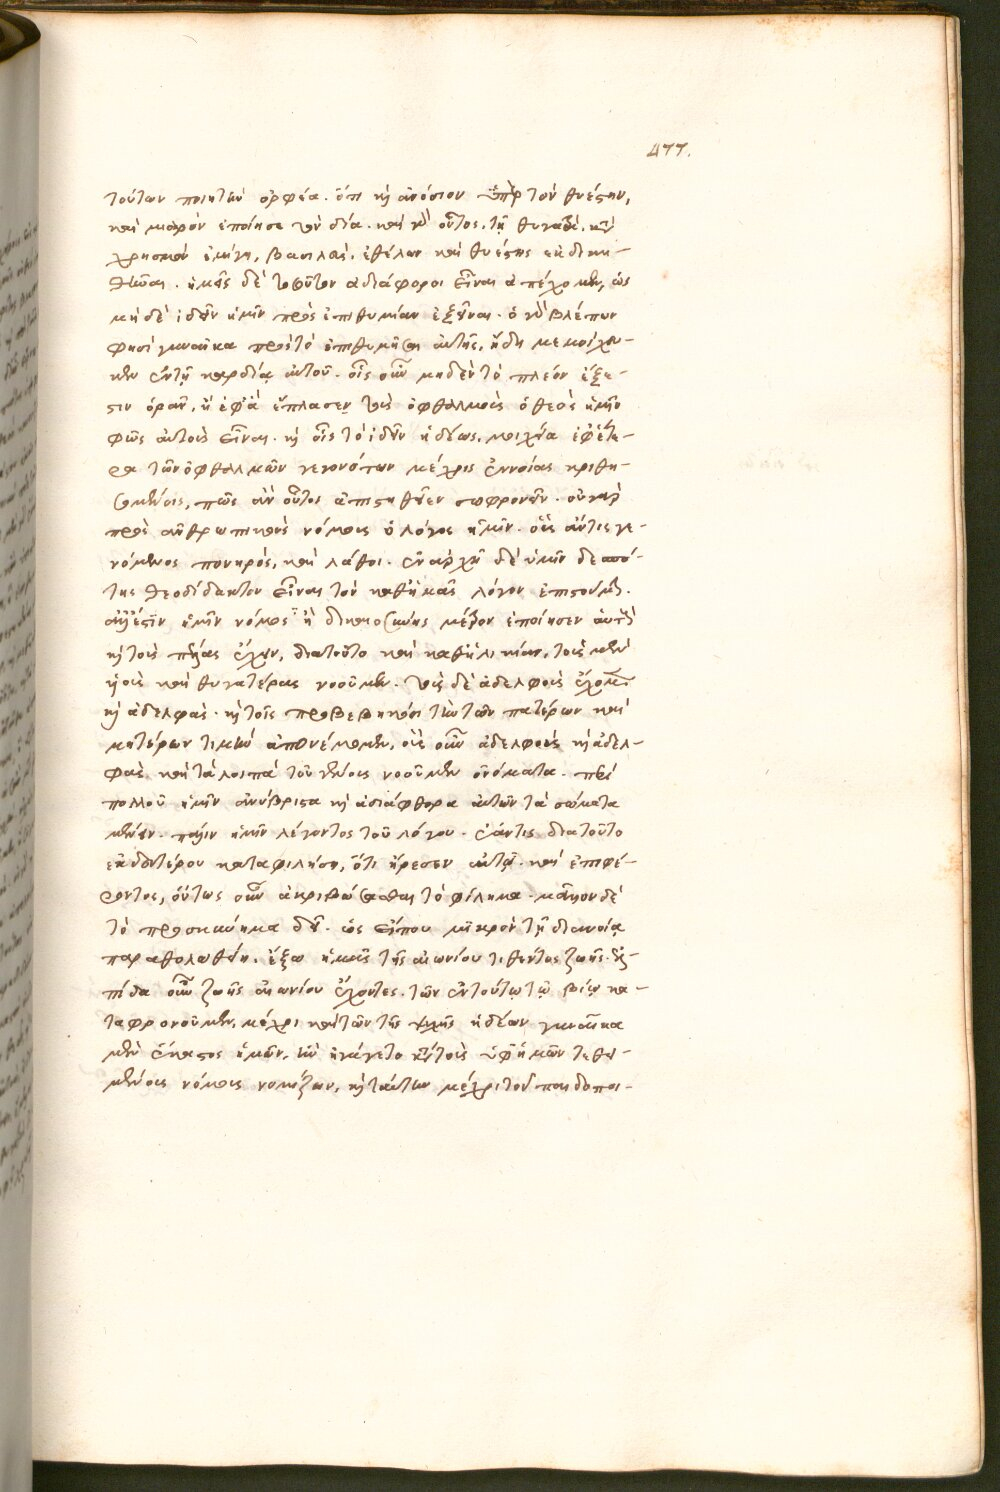 477.
τούτων ποιητὴν ὀρφέα. ὅτι καὶ ἀνόσιον ὑπὲρ τὸν θυέστην,
καὶ μιαρὸν ἐποίησε τὸν δία. καὶ γὰρ οὗτος, τῇ θυγατρὶ, κατὰ
χρησμὸν ἐμίγη, βασιλεῦσαι ἐθέλων καὶ θυέστης ἐκδικη-
θῆναι. ἡμεῖς δὲ τοσοῦτον ἀδιάφοροι εἶναι ἀπέχομεν, ὡς
μηδὲ ἰδεῖν ἡμῖν πρὸς ἐπιθυμίαν ἐξεῖναι. ὁ γὰρ βλέπων
φησὶ γυναῖκα πρὸς τὸ ἐπιθυμῆσαι αὐτῆς, ἤδη μεμοίχευ-
κεν ἐν τῇ καρδίᾳ αὐτοῦ. οἷς οὖν μηδὲν τὸ πλέον ἔξε-
στιν ὁρᾶν, ἢ ἐφ' ἃ ἔπλασεν τοὺς ὀφθαλμοὺς ὁ θεὸς ἡμῖν
φῶς αὐτοὺς εἶναι. καὶ οἷς τὸ ἰδεῖν ἡδέως, μοιχεία ἐφ' ἕτε-
ρα τῶν ὀφθαλμῶν γεγονότων μέχρις ἐννοίας κριθη-
σομένοις, πῶς ἂν οὗτοι ἀπιστηθεῖεν σωφρονεῖν. οὐ γὰρ
πρὸς ἀνθρωπικοὺς νόμους ὁ λόγος ἡμῖν. οὓς ἄν τις γε-
νόμενος πονηρὸς, καὶ λάθοι. ἐν ἀρχῇ δὲ ὑμῖν δεσπό-
της θεοδίδακτον εἶναι τὸν καθ' ἡμᾶς λόγον ἐπιστούμην.
ἀλλ' ἔστιν ἡμῖν νόμος ἢ δικαιοσύνης μέτρον ἐποίησεν αὐτοὺς
καὶ τοὺς πέλας ἔχειν, διὰ τοῦτο καὶ καθ' ἡλικίαν, τοὺς μὲν
υἱοὺς καὶ θυγατέρας νοοῦμεν. τοὺς δὲ ἀδελφοὺς ἔχομεν
καὶ ἀδελφάς. καὶ τοῖς προβεβηκόσι τὴν τῶν πατέρων καὶ
μητέρων τιμὴν ἀπονέμομεν, οὓς οὖν ἀδελφοὺς καὶ ἀδελ-
φὰς καὶ τὰ λοιπὰ τοῦ γένους νοοῦμεν ὀνόματα. περὶ
πολλοῦ ἡμῖν ἀνύβριστα καὶ ἀδιάφθορα αὐτῶν τὰ σώματα
μένειν. πάλιν ἡμῖν λέγοντος τοῦ λόγου. ἐάν τις διὰ τοῦτο
ἐκ δευτέρου καταφιλήσῃ, ὅτι ἤρεσεν αὐτῷ. καὶ ἐπιφέ-
ροντος, οὕτως οὖν ἀκριβώσασθαι τὸ φίλημα. μᾶλλον δὲ
τὸ προσκύνημα δεῖ. ὡς εἴπου μικρὸν τῇ διανοίᾳ
παραθολωθείη, ἔξω ἡμᾶς τῆς αἰωνίου τιθέντος ζωῆς. ἐλ-
πίδα οὖν ζωῆς αἰωνίου ἔχοντες, τῶν ἐν τούτῳ τῷ βίῳ κα-
ταφρονοῦμεν, μέχρι καὶ τῶν τῆς ψυχῆς ἡδέων γυναῖκα
μὲν ἕκαστος ἡμῶν, ἣν ἠγάγετο κατὰ τοὺς ὑφ' ἡμῶν τεθει-
μένους νόμους νομίζων, καὶ ταύτην μέχρι τοῦ παιδοποι-